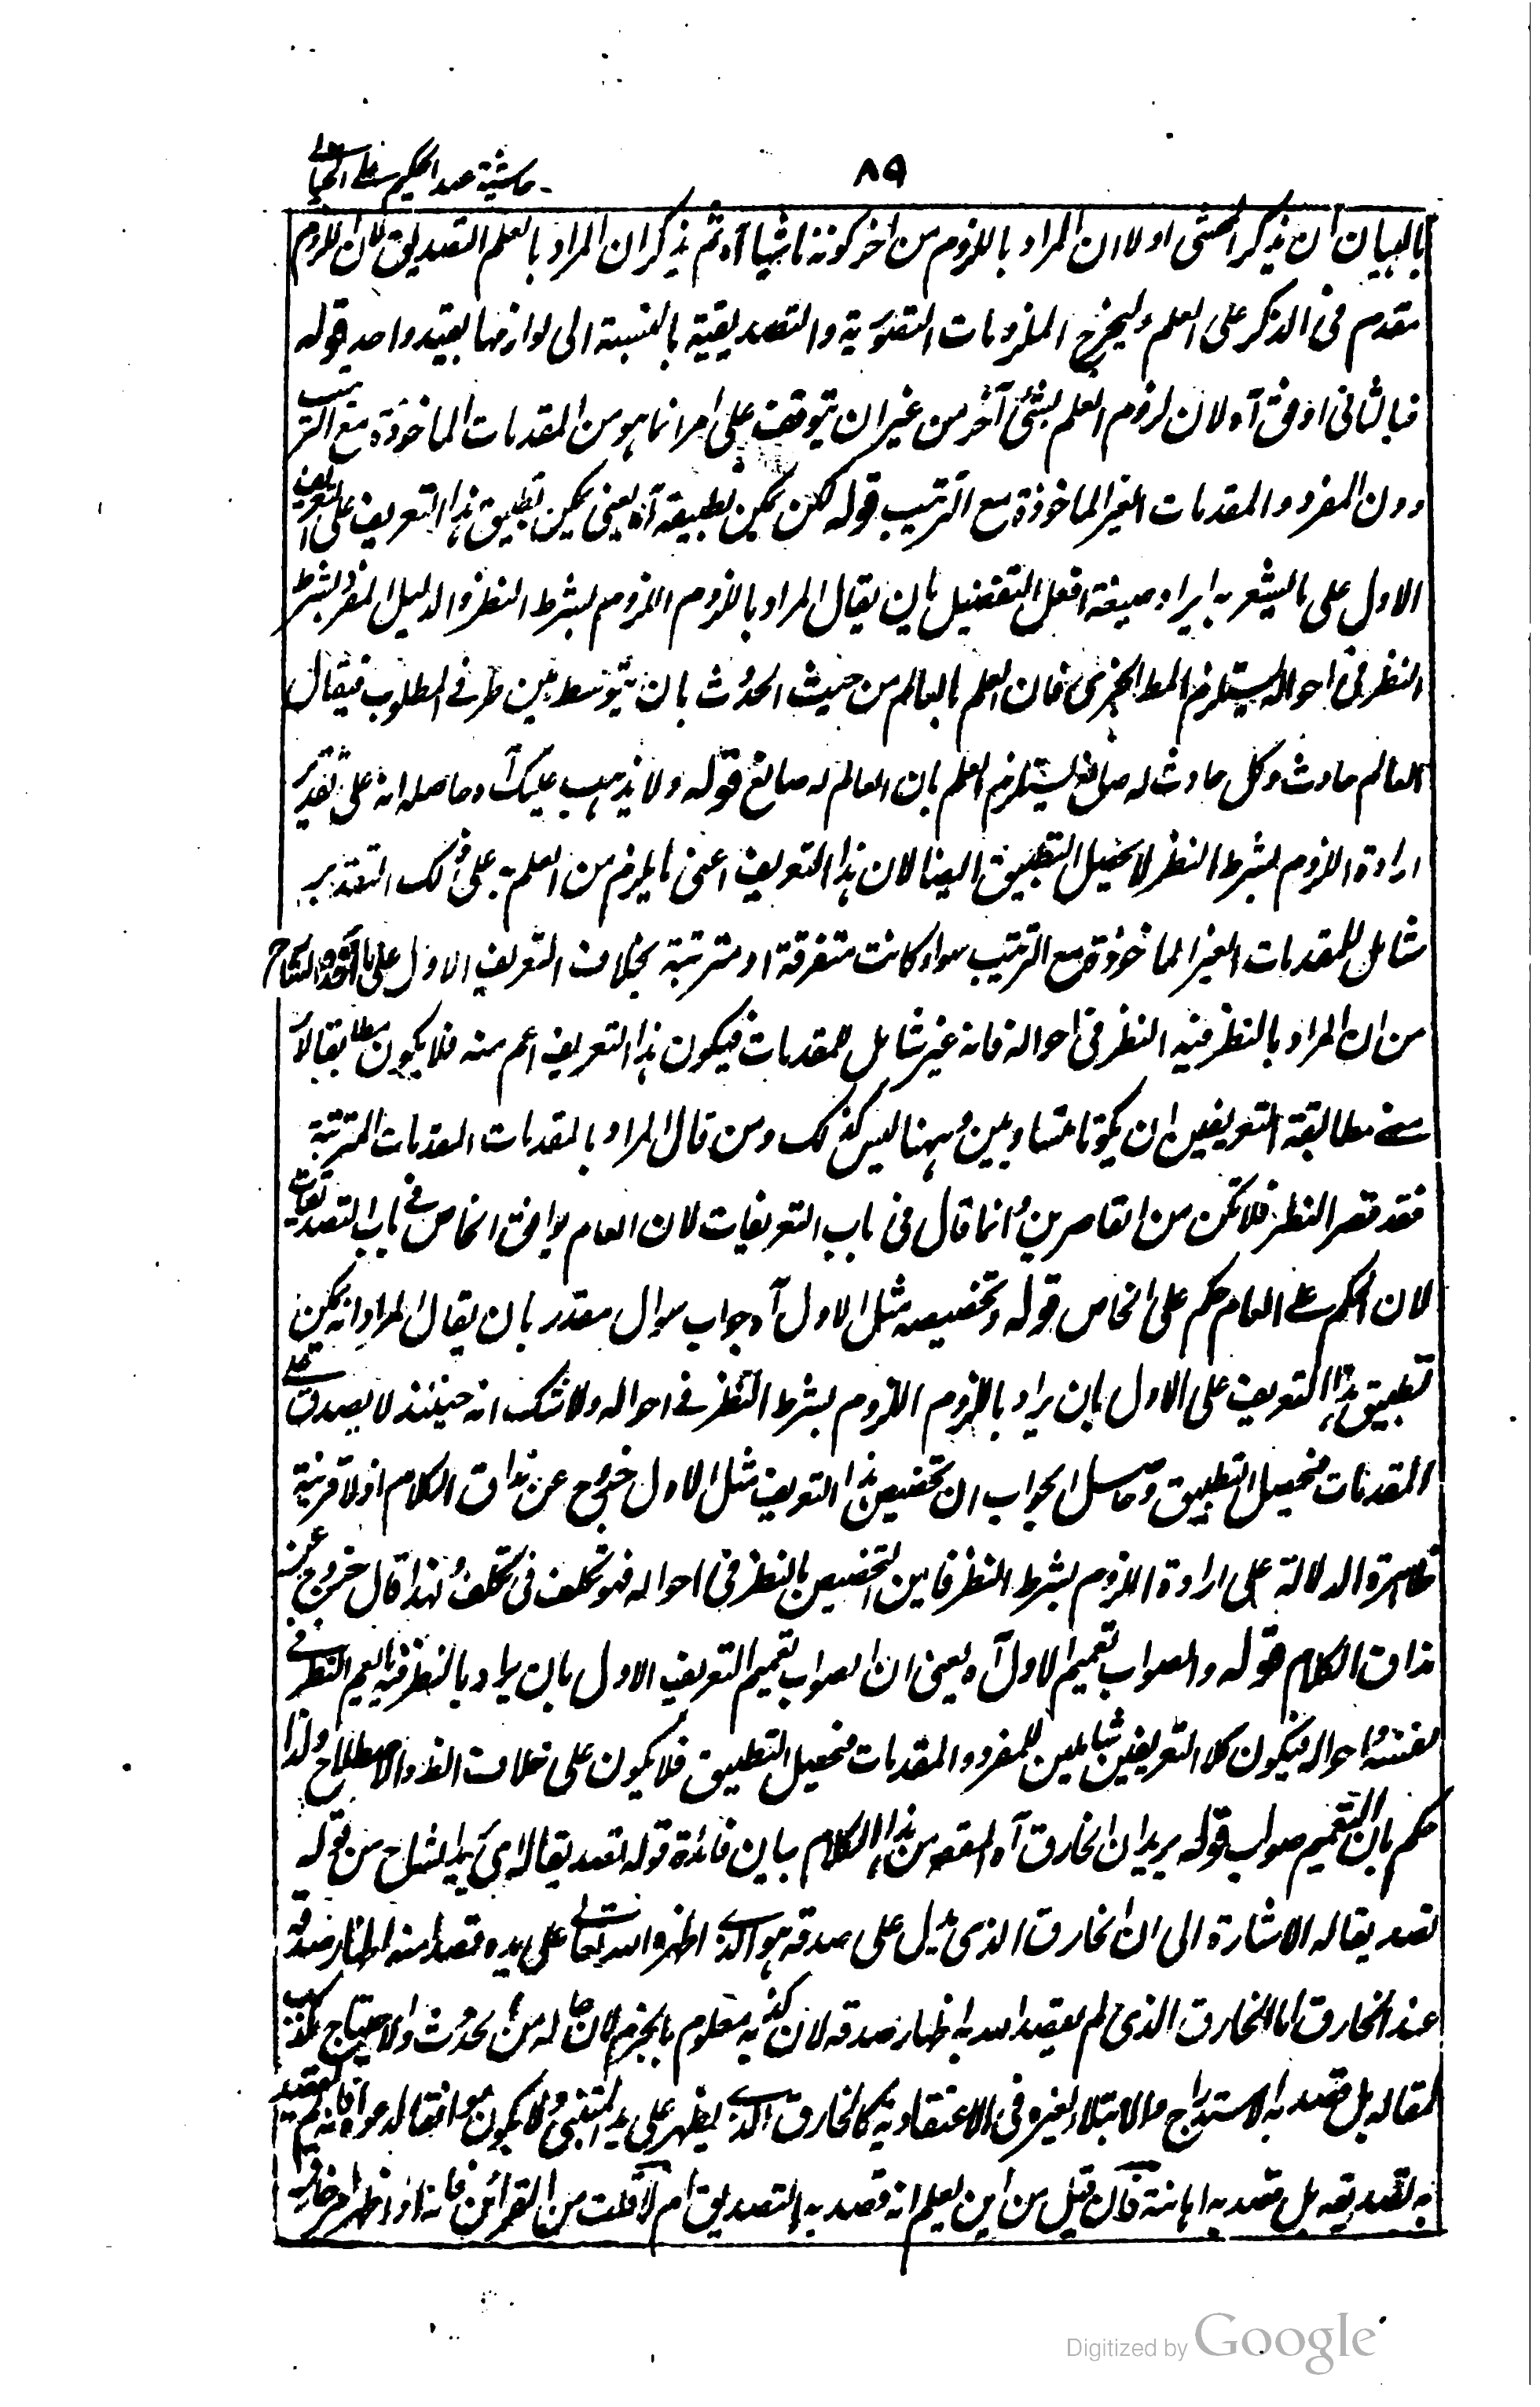 ٨٩
حاشية عبد الحكيم على الخيالي
بالبيان ان يذكر المحشى اولا ان المراد باللزوم من اخر كونه ناشيا آه ثم يذكر ان المراد بالعلم التصديق لان اللزوم
مقدم فى الذكر على العلم وليخرج الملزومات التصورية والتصديقية بالنسبة الى لوازمها بقيد واحد قوله
فبالثانى اوفق آه لان لزوم العلم بشئ آخر من غير ان يتوقف على امر انما هو من المقدمات الماخوذة مع الترتيب
دون المفرد والمقدمات الغير الماخوذة مع الترتيب قوله لكن يمكن تطبيقه آه يعنى يمكن تطبيق هذا التعريف على التعريف
الاول على ما يشعر به ايراد صيغة افعل التفضيل بان يقال المراد باللزوم اللزوم بشرط النظر والدليل المفرد بشرط
النظر فى احواله يستلزم المط الخبرى فان العلم بالعالم من حيث الحدوث بان يتوسط بين طرفى المطلوب فيقال
العالم حادث وكل حادث له صانع يستلزم العلم بان العالم له صانع قوله ولا يذهب عليك آه حاصله انه على تقدير
ارادة اللزوم بشرط النظر لا يحصل التطبيق ايضا لان هذا التعريف اعنى ما يلزم من العلم به على ذلك التقدير
شامل للمقدمات الغير الماخوذة مع الترتيب سواء كانت متفرقة او مترتبة بخلاف التعريف الاول على ما اخذه الشارح
من ان المراد بالنظر فيه النظر فى احواله فانه غير شامل للمقدمات فيكون هذا التعريف اعم منه فلا يكون مطابقا لان
معنے مطابقة التعريفين ان يكونا متساويين وههنا ليس كذلك ومن قال المراد بالمقدمات المقدمات المترتبة
فقد قصر النظر فلا تكن من القاصرين وانما قال فى باب التعريفات لان العام يوافق الخاص فے باب التصديقات
لان الحكم على العام حكم على الخاص قوله وتخصيصه مثل الاول آه جواب سوال مقدر بان يقال المراد انه يمكن
تطبيق هذا التعريف على الاول بان يراد باللزوم اللزوم بشرط النظر فے احواله ولا شك انه حينئذ لا يصدق على
المقدمات فيحصل التطبيق وحاصل الجواب ان تخصيص هذا التعريف مثل الاول خروج عن مذاق الكلام اذ لا قرينة
ظاهرة الدلالة على ارادة اللزوم بشرط النظر فاين التخصيص بالنظر فى احواله فهو تكلف فى تكلف ولهذا قال خروج عن
مذاق الكلام قوله والصواب تعميم الاول آه يعنى ان الصواب تعميم التعريف الاول بان يراد بالنظر فيه ما يعم النظر فے
نفسه واحواله فيكون كلا التعريفين شاملين للمفرد والمقدمات فيحصل التطبيق فلا يكون على خلاف الظ والاصطلاح ولذا
حكم بان التعميم صواب قوله يريد ان الخارق آه المقصد من هذا الكلام بيان فائدة قوله تصديقا له اى يريد الشارح من قوله
تصديقا له الاشارة الى ان الخارق الذى يدل على صدقه هو الذے اظهره الله تعالے على يده قصدا منه اظهار صدقه
عند الخارق اما الخارق الذى لم يقصد الله به اظهار صدقه لان كذبه معلوم بالجزم لان له من الحدوث والاحتياج يكذب
لمقاله بل قصد به الاستدراج والابتلاء لغيره فى الاعتقادية كالخارق الذے يظهر على يد المتنبى ولا يكون موافقا لدعواه فانه لم يقصد
به تصديقه بل قصد به اهانته فان قيل من اين يعلم انه قصد به التصديق ام لا قلت من القرائن فانه اذا ظهر امر خارق
Digitized by Google